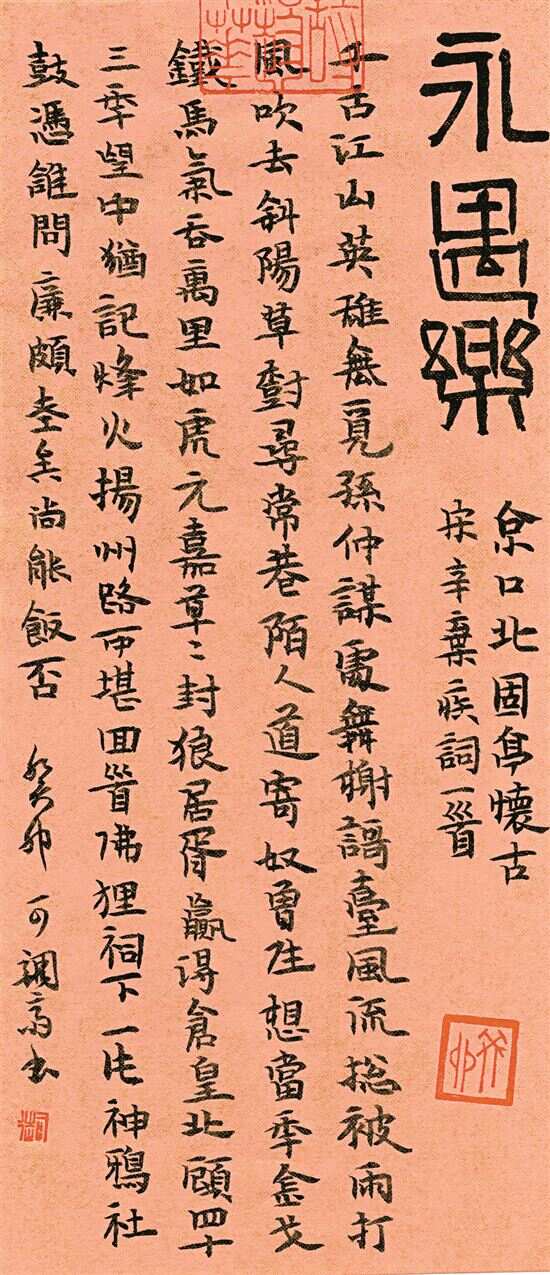 永遇樂
京口北固亭懷古
宋辛棄疾詞一首
千古江山英雄無覓孫仲謀處舞榭謌臺風流捴被雨打
風吹去斜陽草樹尋常巷陌人道寄奴曾住想當年金戈
鐵馬氣吞萬里如虎元嘉草〻封狼居胥贏得倉皇北顧四十
三年望中猶記烽火揚州路可堪回首佛狸祠下一片神鴉社
鼓憑誰問廉頗老矣尚能飯否 癸卯 可調齋書